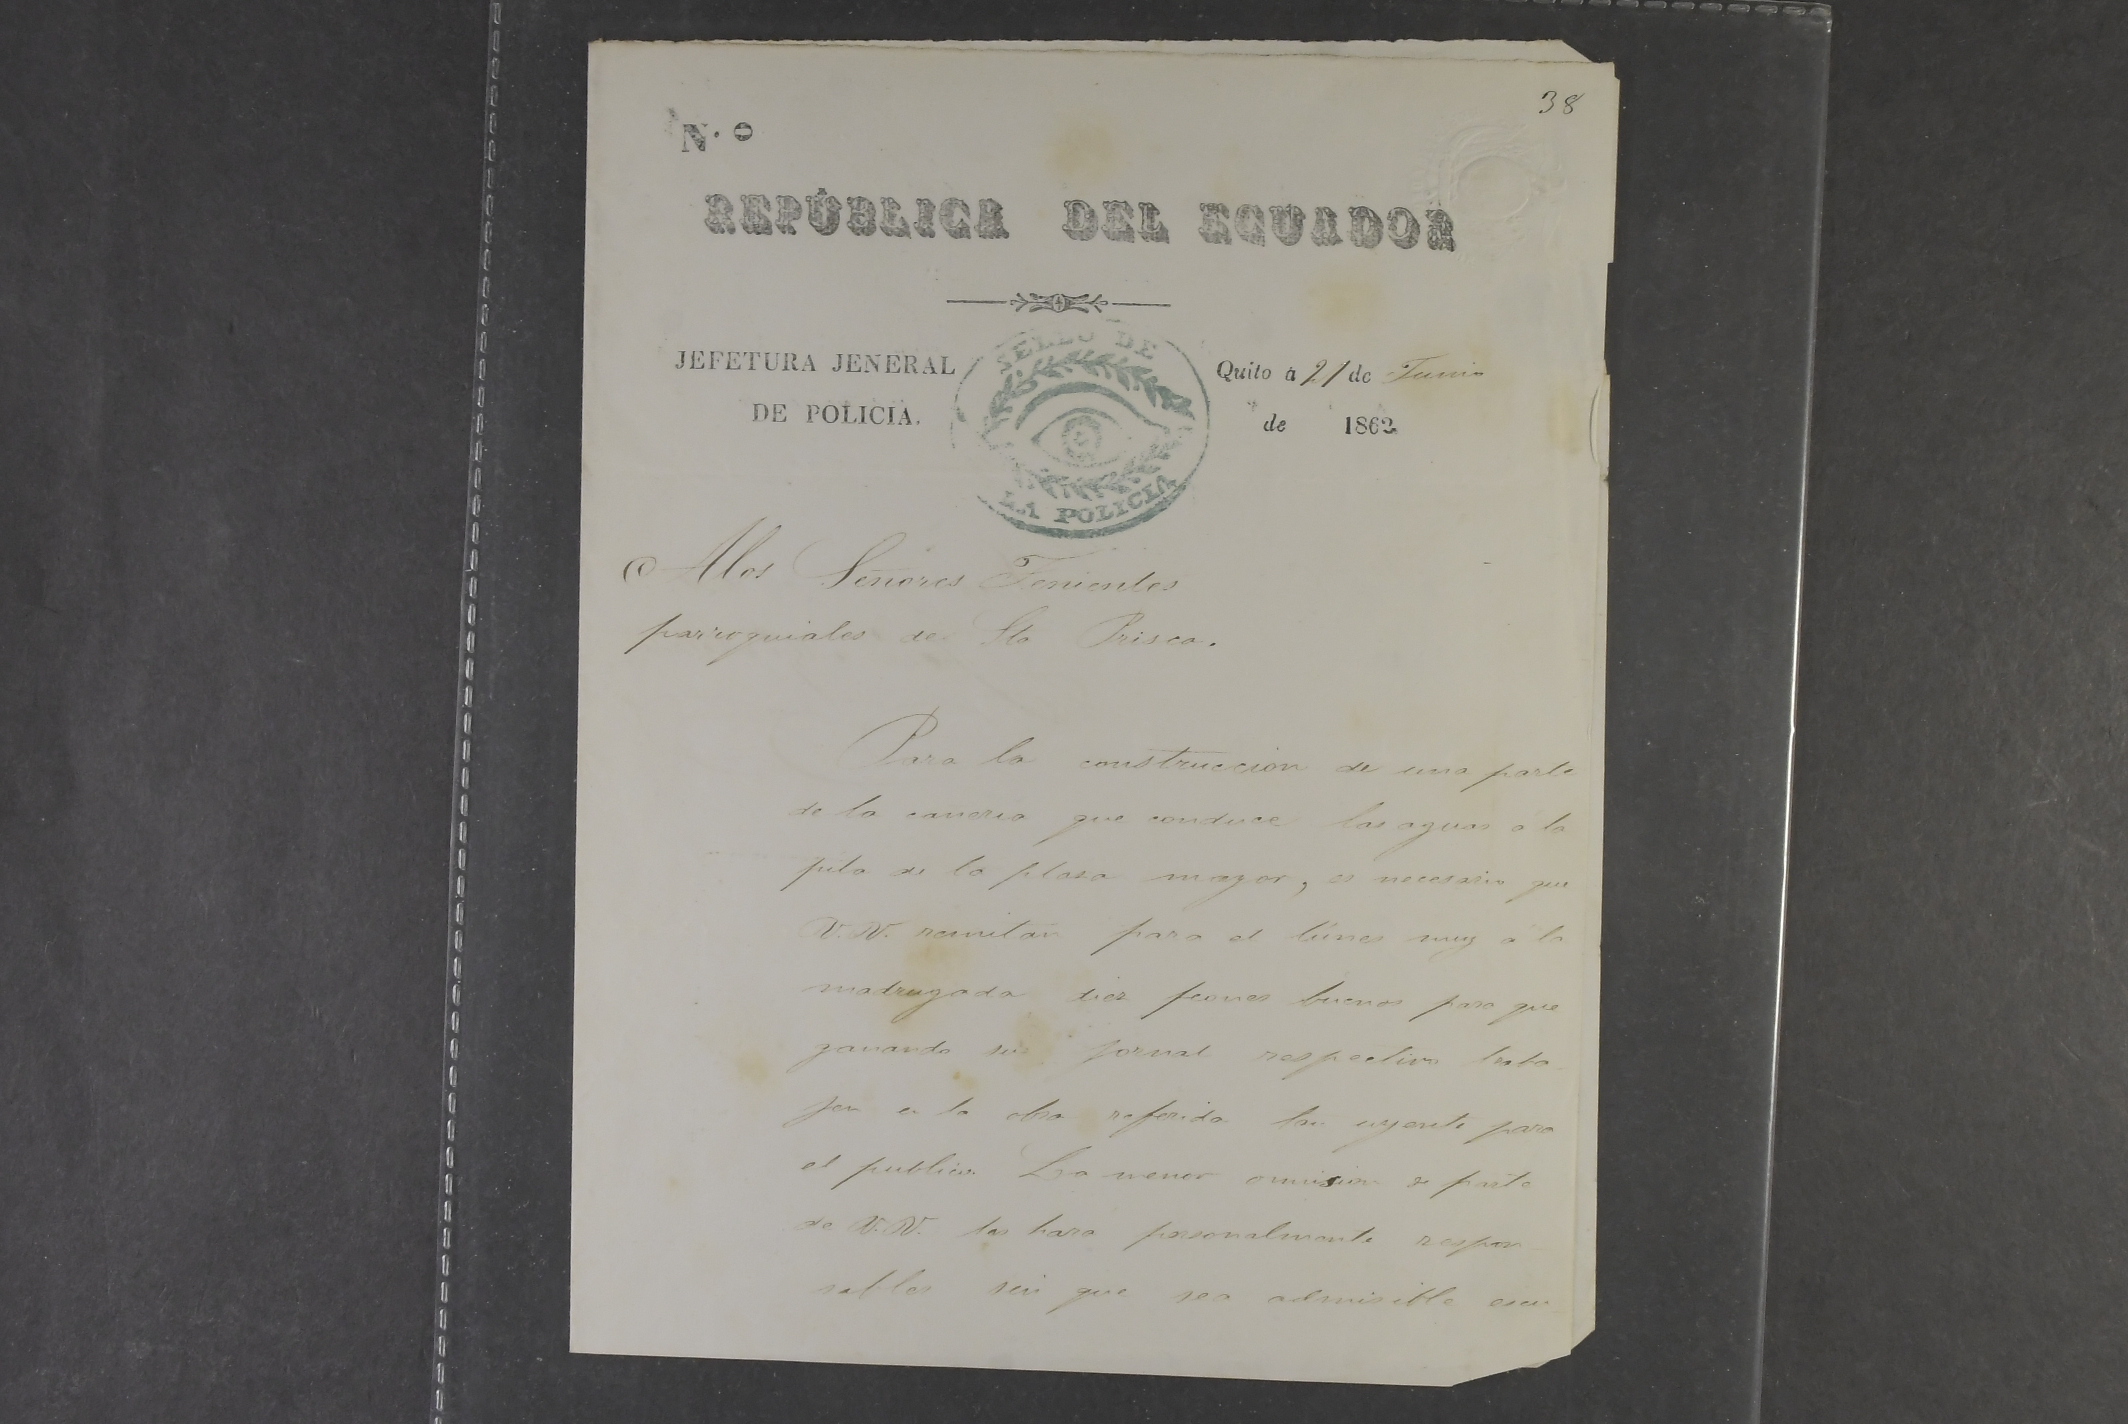 38
N.º
REPÚBLICA DEL ECUADOR
JEFETURA JENERAL
DE POLICIA.
SELLO DE
LA POLICIA
Quito à 21 de Junio
de 1862
A los Señores Tenientes
parroquiales de Sta Prisca.
Para la construccion de una parte
de la caneria que conduce las aguas á la
pila de la plaza mayor, es necesario que
V.V. remitan para el lúnes muy á la
madrugada diez peones buenos para que
ganando su jornal respectivo traba-
jen en la obra referida tan urjente para
el publico. La menor omision de parte
de V.V. les hara personalmente respon-
sables sin que sea admisible escu-